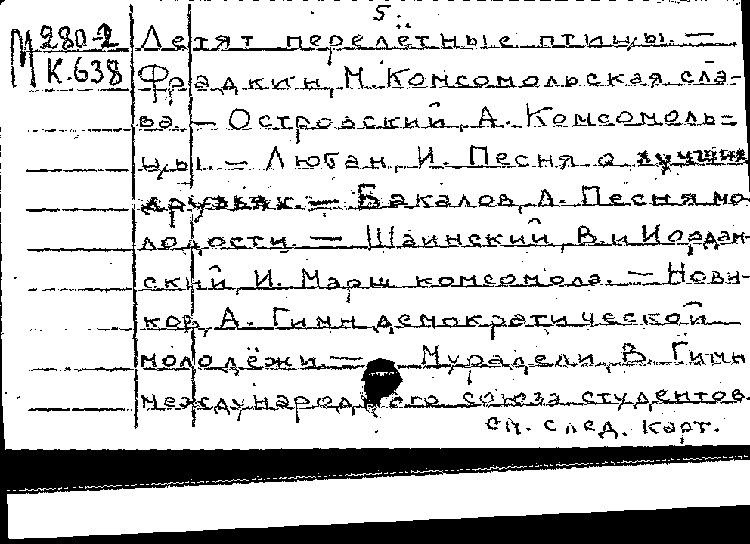 5.
М 280-2 Летят перелётные птицы. —
К.638 Фрадкин, М. Комсомольская сла-
ва. — Островский, А. Комсомоль=
цы. — Любан, И. Песня о лучших
друзьях. — Бакалов, Л. Песня мо
лодости. — Шаинский, В. и Иордан-
ский, И. Марш комсомола. — Нови-
ков, А. Гимн демократической
молодёжи. — Мурадели, В. Гимн
международного союза студентов.
см. след. карт.